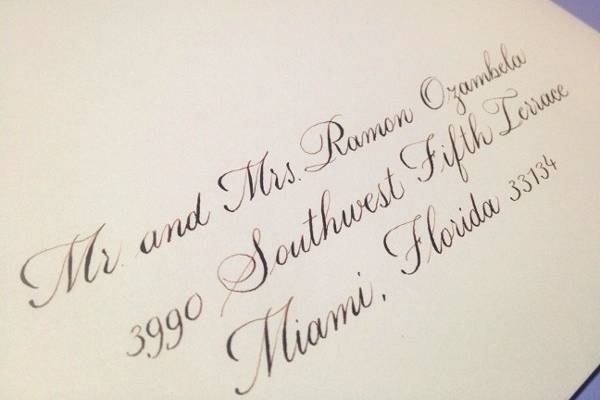 Mr. and Mrs. Ramon Ozambela
3990 Southwest Fifth Terrace
Miami, Florida 33134